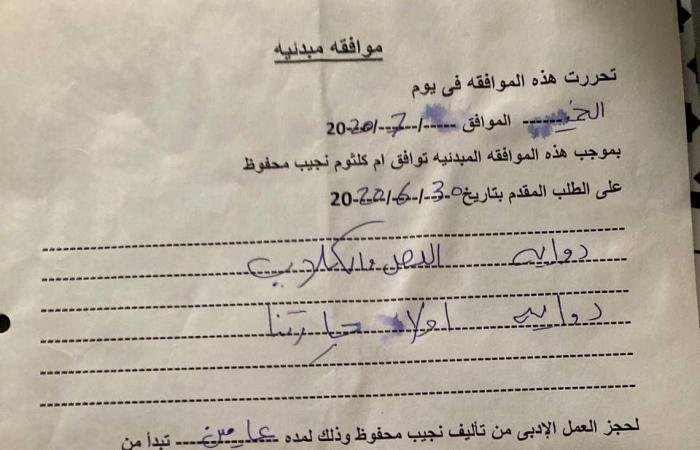 موافقه مبدئيه
تحررت هذه الموافقه فى يوم
الموافق -----/--7--/--2020
بموجب هذه الموافقه المبدئيه توافق ام كلثوم نجيب محفوظ
على الطلب المقدم بتاريخ 30-/-6-/-2020
دوايه اللص والكلاب
دوايه اولاد حارتنا
لحجز العمل الإدبى من تأليف نجيب محفوظ وذلك لمده عامين تبدأ من